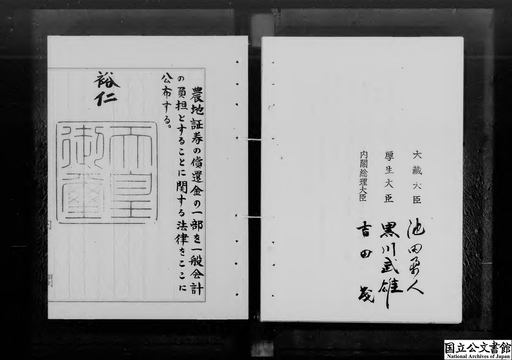 農地証券の償還金の一部を一般会計
の負担とすることに関する法律をここに
公布する。
裕仁
天皇
御璽
大蔵大臣 池田勇人
厚生大臣 黒川武雄
内閣総理大臣 吉田茂
国立公文書館
National Archives of Japan